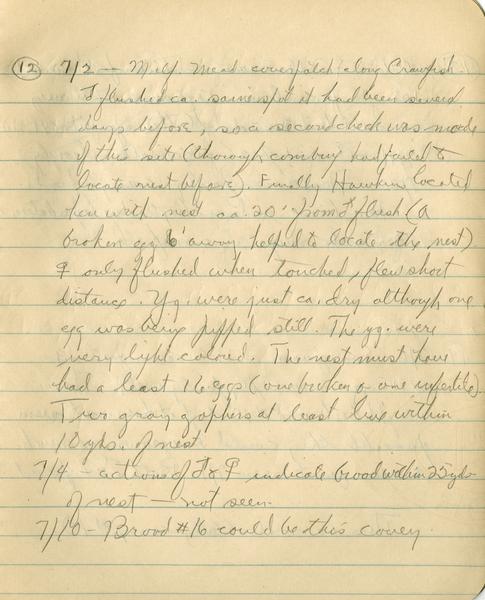 (12) 7/2 — Milf Mead cover patch along Crawfish.
♂ flushed ca. same spot it had been several
days before, so a second check was made
of this site (thorough combing had failed to
locate nest before). Finally Hawkins located
hen with nest ca. 20' from ♂ flush (a
broken egg 6' away helped to locate the nest)
♀ only flushed when touched, flew short
distance. Yg. were just ca. dry although one
egg was being pipped still. The yg. were
very light colored. The nest must have
had a least 16 eggs (one broken & one infertile).
Two gray gophers at least live within
10 yds. of nest
7/4 - actions of ♂ & ♀ indicate brood within 25 yds
of nest — not seen.
7/10 - Brood #16 could be this covey.